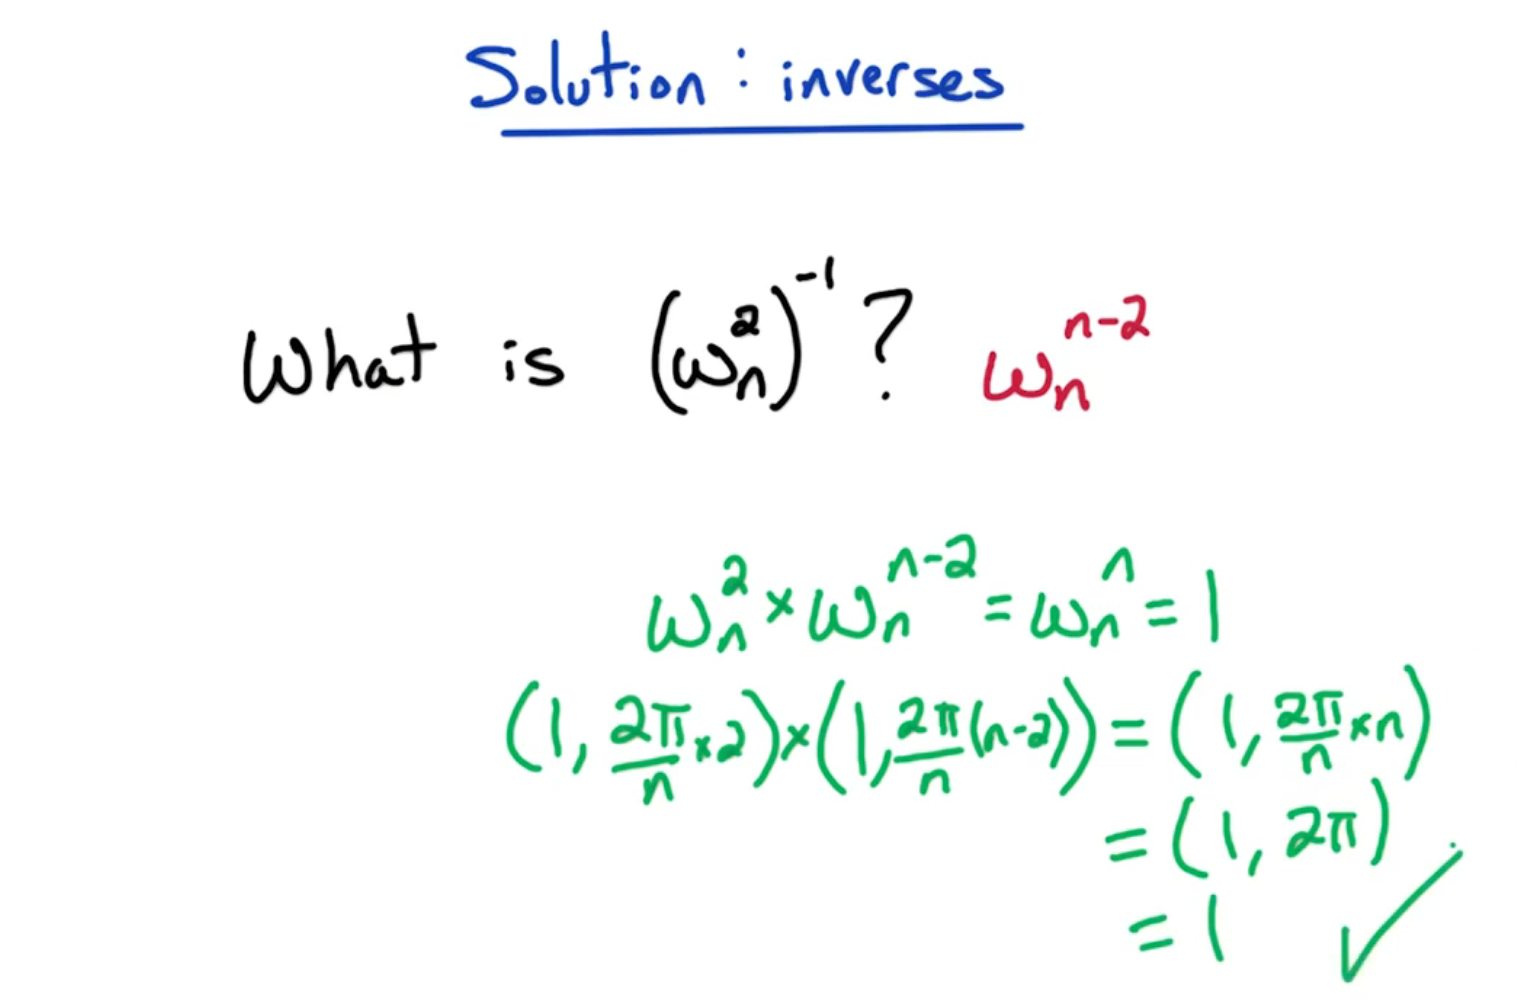 Solution : inverses
What is (ωₙ²)⁻¹ ? ωₙⁿ⁻²
ωₙ² × ωₙⁿ⁻² = ωₙⁿ = 1
(1, 2π/n × 2) × (1, 2π/n (n-2)) = (1, 2π/n × n)
= (1, 2π)
= 1 ✓